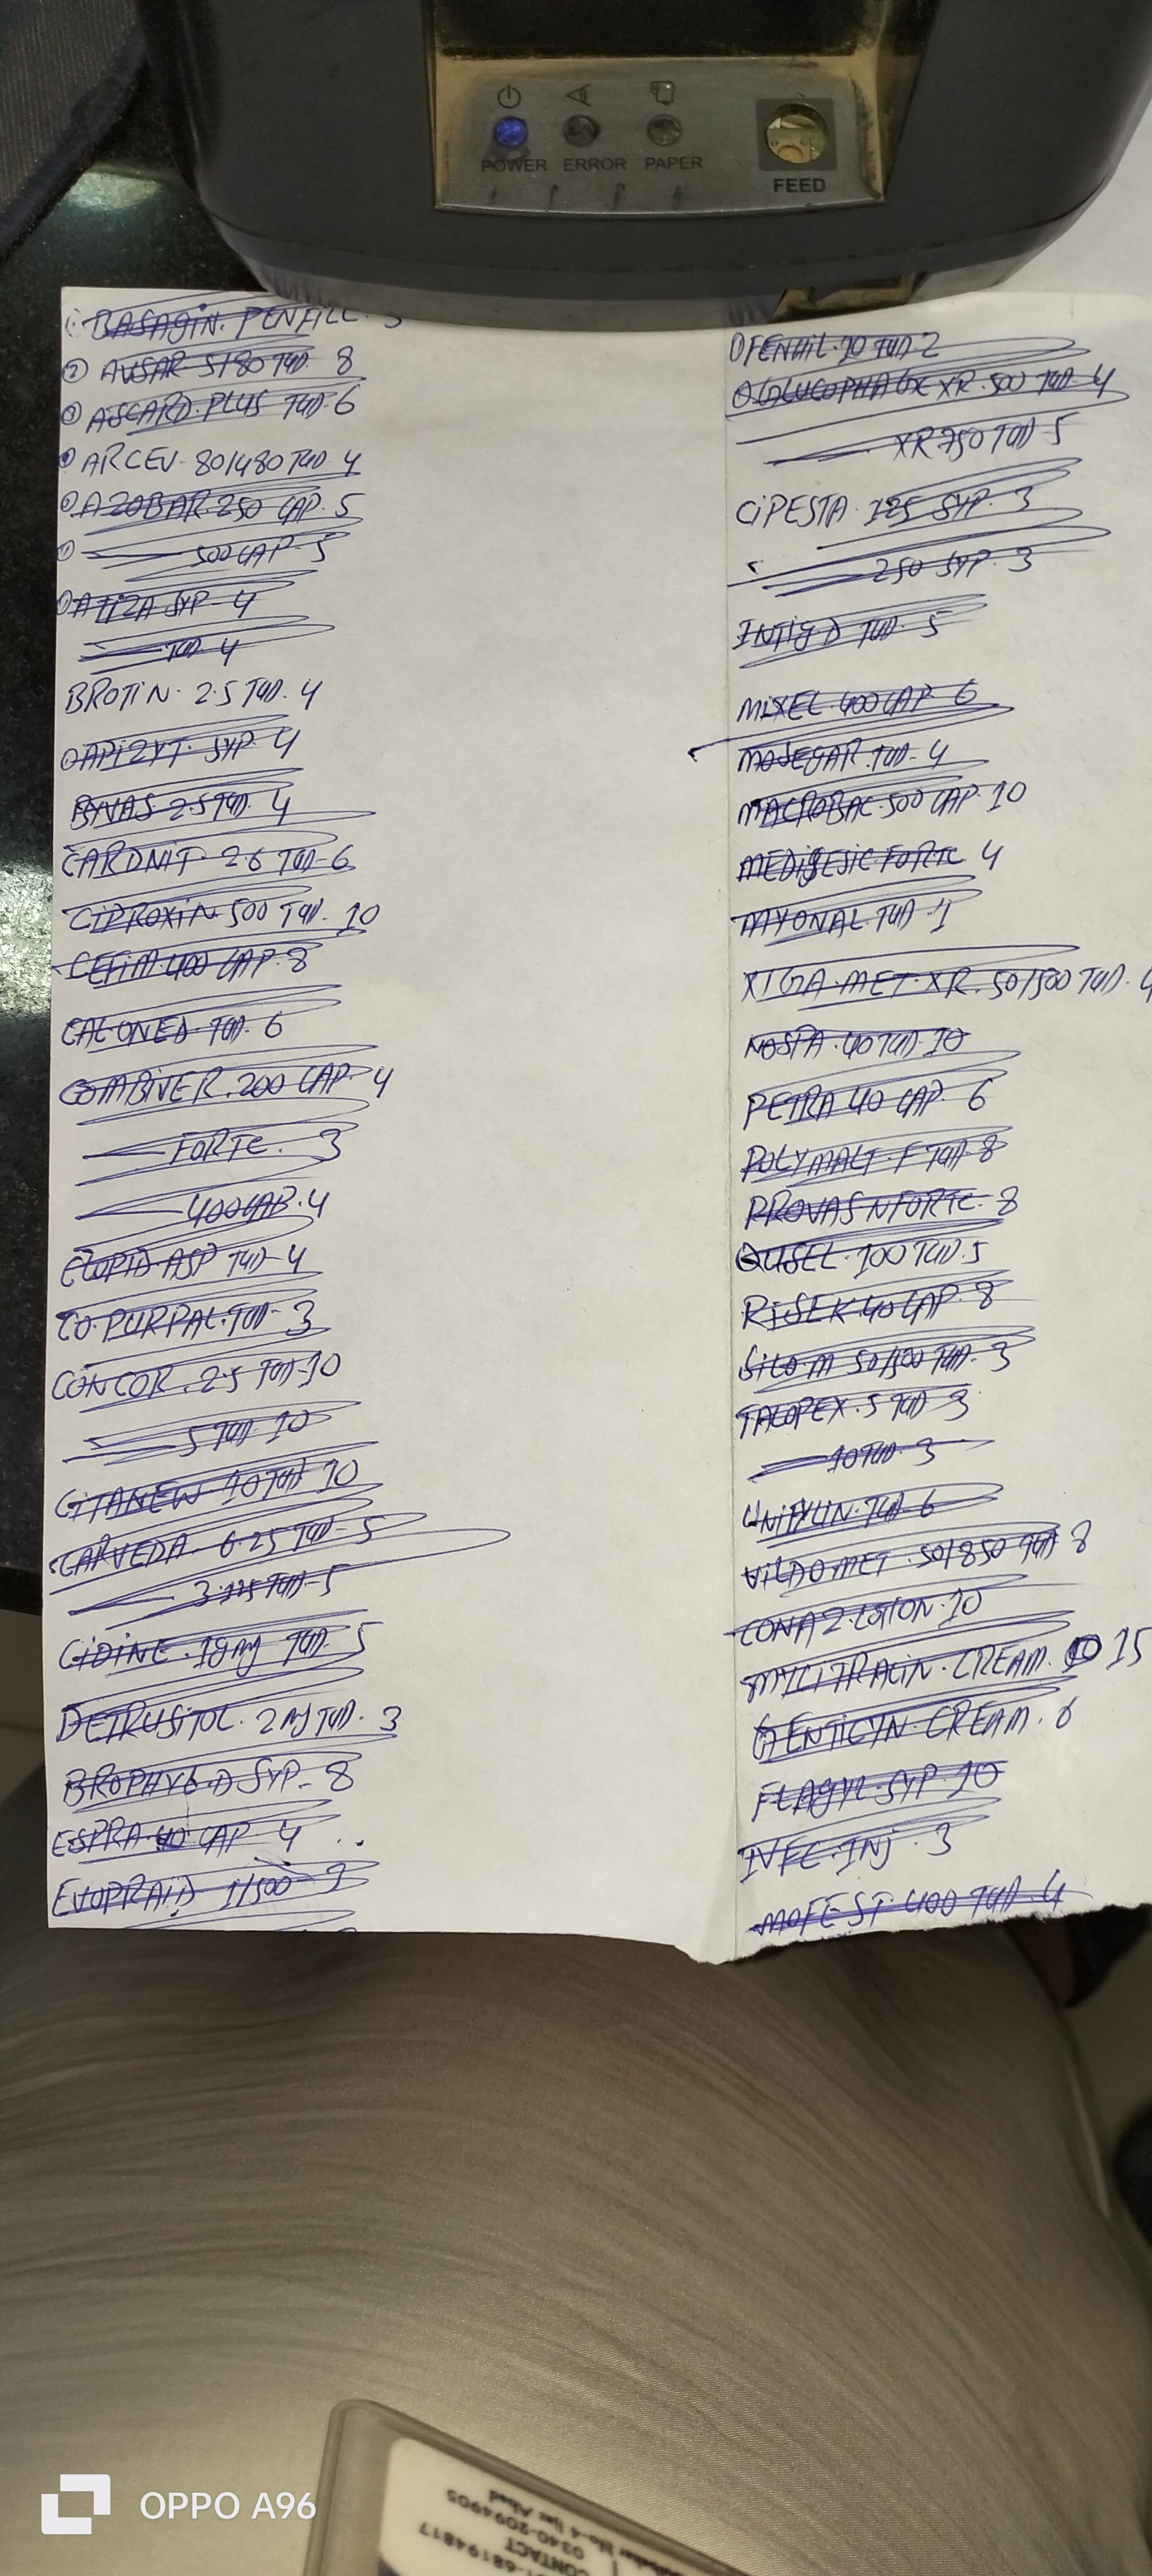 POWER ERROR PAPER
FEED
BASAGIN. PENFILL. 3
② AVSAR 5/80 TAB. 8
③ ASCARD. PLUS TAB. 6
ARCEV. 80/480 TAB 4
AZOBAR. 250 CAP. 5
500 CAP. 5
ATIZA SYP. 4
TAB. 4
BROTIN. 2.5 TAB. 4
SYP. 4
BYVAS 2.5 TAB. 4
CARDNIT. 2.6 TAB. 6
CIPROXIN 500 TAB. 10
CEFIM. 400 CAP. 8
CALONED TAB. 6
COMBIVER. 200 CAP. 4
FORTE. 3
400 CAB. 4
ASP TAB. 4
CO. PURPAL. TAB. 3
CONCOR. 2.5 TAB. 10
5 TAB. 10
CITANEW 10 TAB. 10
CARVEDA. 6.25 TAB. 5
3.125 TAB. 5
CIDINE. 1 mg TAB. 5
DETRUSITOL. 2 mg TAB. 3
D SYP. 8
ESPRA. 40 CAP 4
1/500
FENHIL. 10 TAB. 2
GLUCOPHAGE XR. 500 TAB. 4
XR 750 TAB. 5
CIPESTA. 125 SYP. 3
250 SYP. 3
INTIG D TAB. 5
MIXEL. 400 CAP. 6
MOSEGAR. TAB. 4
MACROBAC. 500 CAP. 10
MEDIGESIC FORTE 4
MYONAL. TAB. 1
XIGA. MET. XR. 50/500 TAB. 4
NOSPA. 40 TAB. 10
PETRA 40 CAP. 6
POLYMALT. F TAB. 8
PROVAS N FORTE. 8
QUSEL. 100 TAB. 5
RISEK. 40 CAP. 8
50/500 TAB. 3
TALOPEX. 5 TAB 3
10 TAB. 3
UNIFYLIN. TAB. 6
VILDOMET. 50/850 TAB 8
CONAZ. LOTION. 10
MYCITRACIN. CREAM. 15
GENTICYN. CREAM. 6
FLAGYL. SYP. 10
IVFC. INJ. 3
MOFEST. 400 TAB. 4
CONTACT
OPPO A96